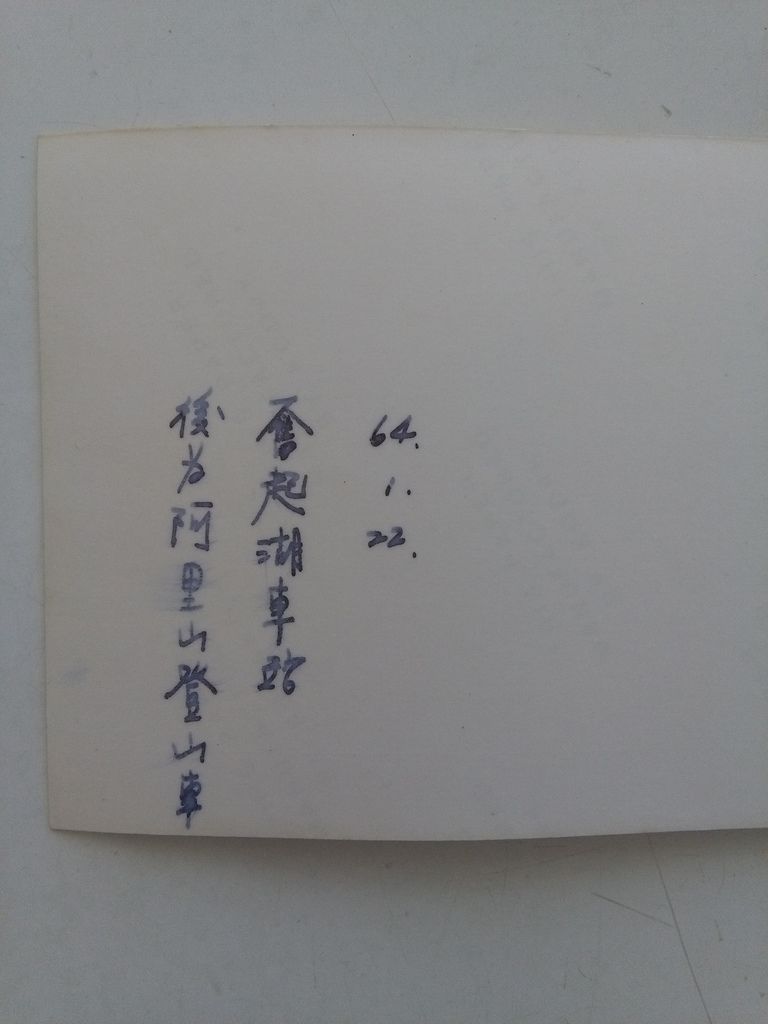 64.1.22.
奮起湖車站
後为阿里山登山車